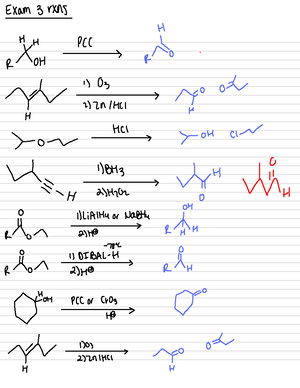 Exam 3 rxns
H H R OH PCC H R O
H 1) O₃ 2) Zn/HCl O H O
O HCl OH Cl
H 1) BH₃ 2) H₂O₂ H O O H
O R O 1) LiAlH₄ or NaBH₄ 2) H⊕ OH R H H
O R O -78°C 1) DIBAL-H 2) H⊕ O R H
H OH PCC or CrO₃ H⊕ O
H 1) O₃ 2) Zn/HCl O H O